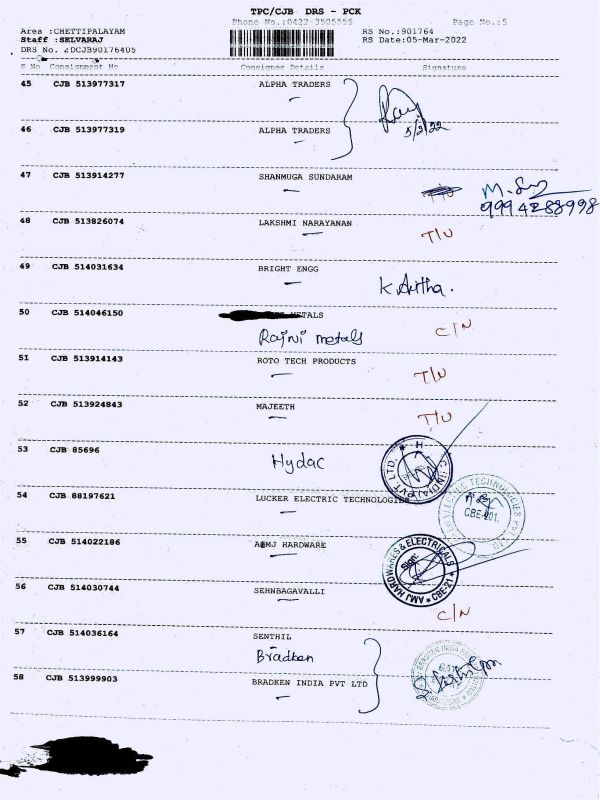 TPC/CJB DRS - PCK
Phone No.:0422-3505555 Page No.:5
Area :CHETTIPALAYAM RS No.:901764
Staff :SELVARAJ RS Date:05-Mar-2022
DRS No. :DCJB90176405
S No Consignment No Consignee Details Signature
45 CJB 513977317 ALPHA TRADERS
5/3/22
46 CJB 513977319 ALPHA TRADERS
47 CJB 513914277 SHANMUGA SUNDARAM
9994288998
48 CJB 513826074 LAKSHMI NARAYANAN T/U
49 CJB 514031634 BRIGHT ENGG
50 CJB 514046150 METALS
Rajni metals C/N
51 CJB 513914143 ROTO TECH PRODUCTS
T/U
52 CJB 513924843 MAJEETH T/U
53 CJB 85696 Hydac
54 CJB 88197621 LUCKER ELECTRIC TECHNOLOGIES
CBE-201.
55 CJB 514022186 AMJ HARDWARE
AMJ HARDWARES & ELECTRICALS
Sign:
CBE-21
56 CJB 514030744 SEHNBAGAVALLI C/N
57 CJB 514036164 SENTHIL
Bradken
58 CJB 513999903 BRADKEN INDIA PVT LTD